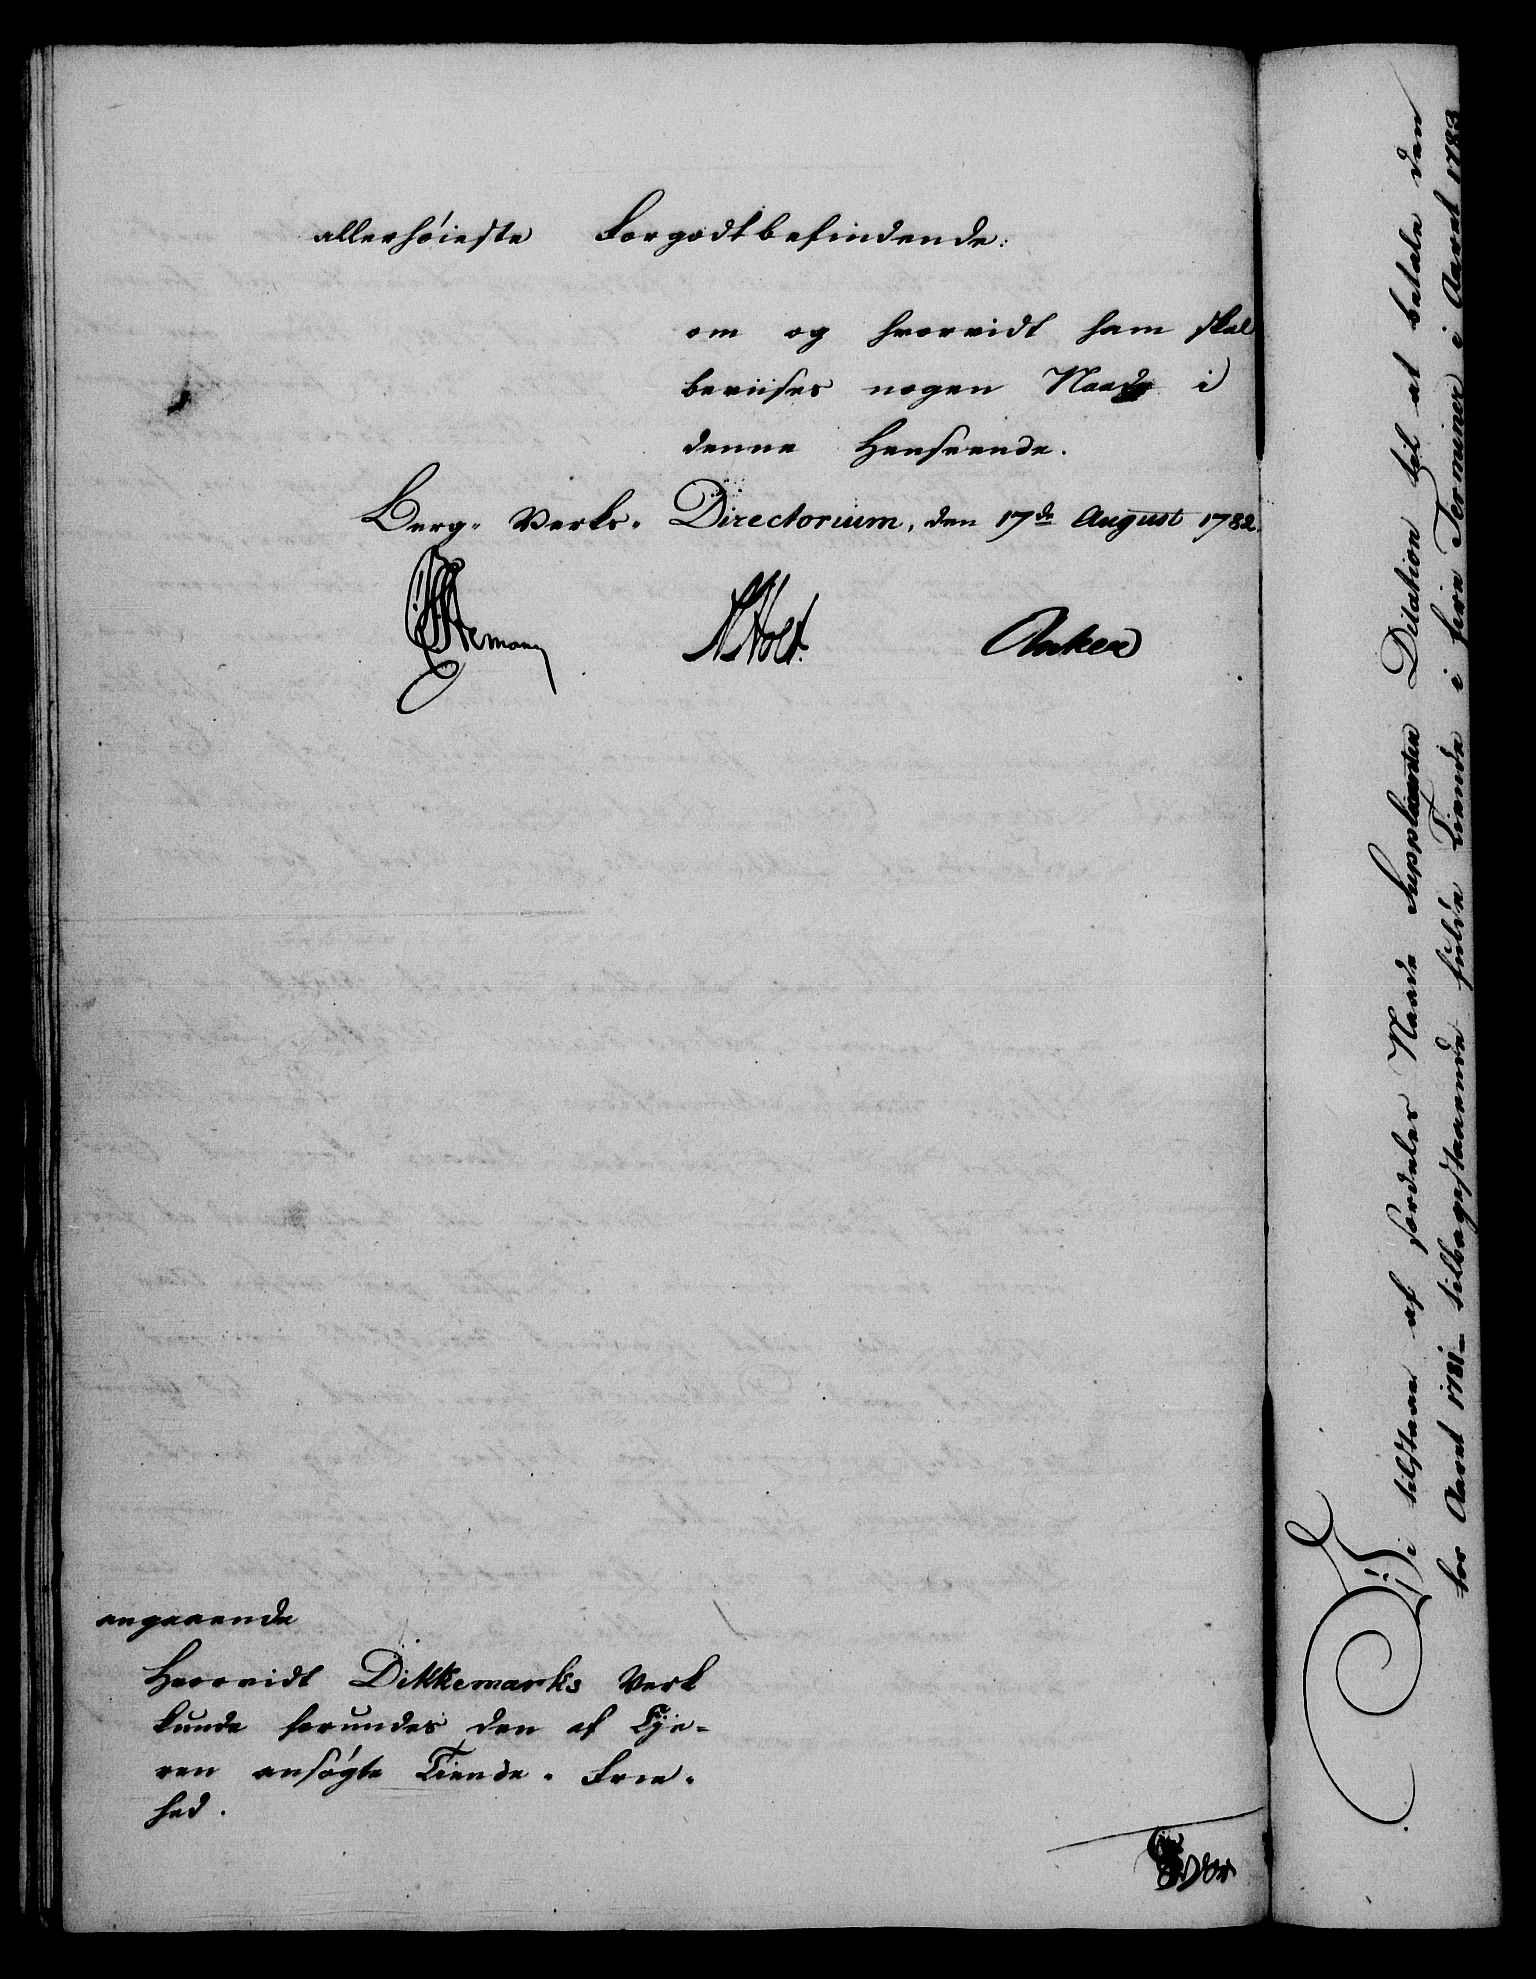 allerhöieste Forgodtbefindende:
om og hvorvidt ham skal
beviises nogen Naade i
denne Henseende.
Berg-Verks-Directorium, den 17de August 1782.
Holt. Anker
angaaende
Hvorvidt Dikkemarks Verk
kunde forundes den af Eje-
ren ansøgte Tiende-Frie-
hed.
Vi tilstaae af særdeles Naade Supplicanten Dilation til at betale den
for Aaret 1781 tilbagestaaende fulde Tiende i fire Terminer i Aaret 1783